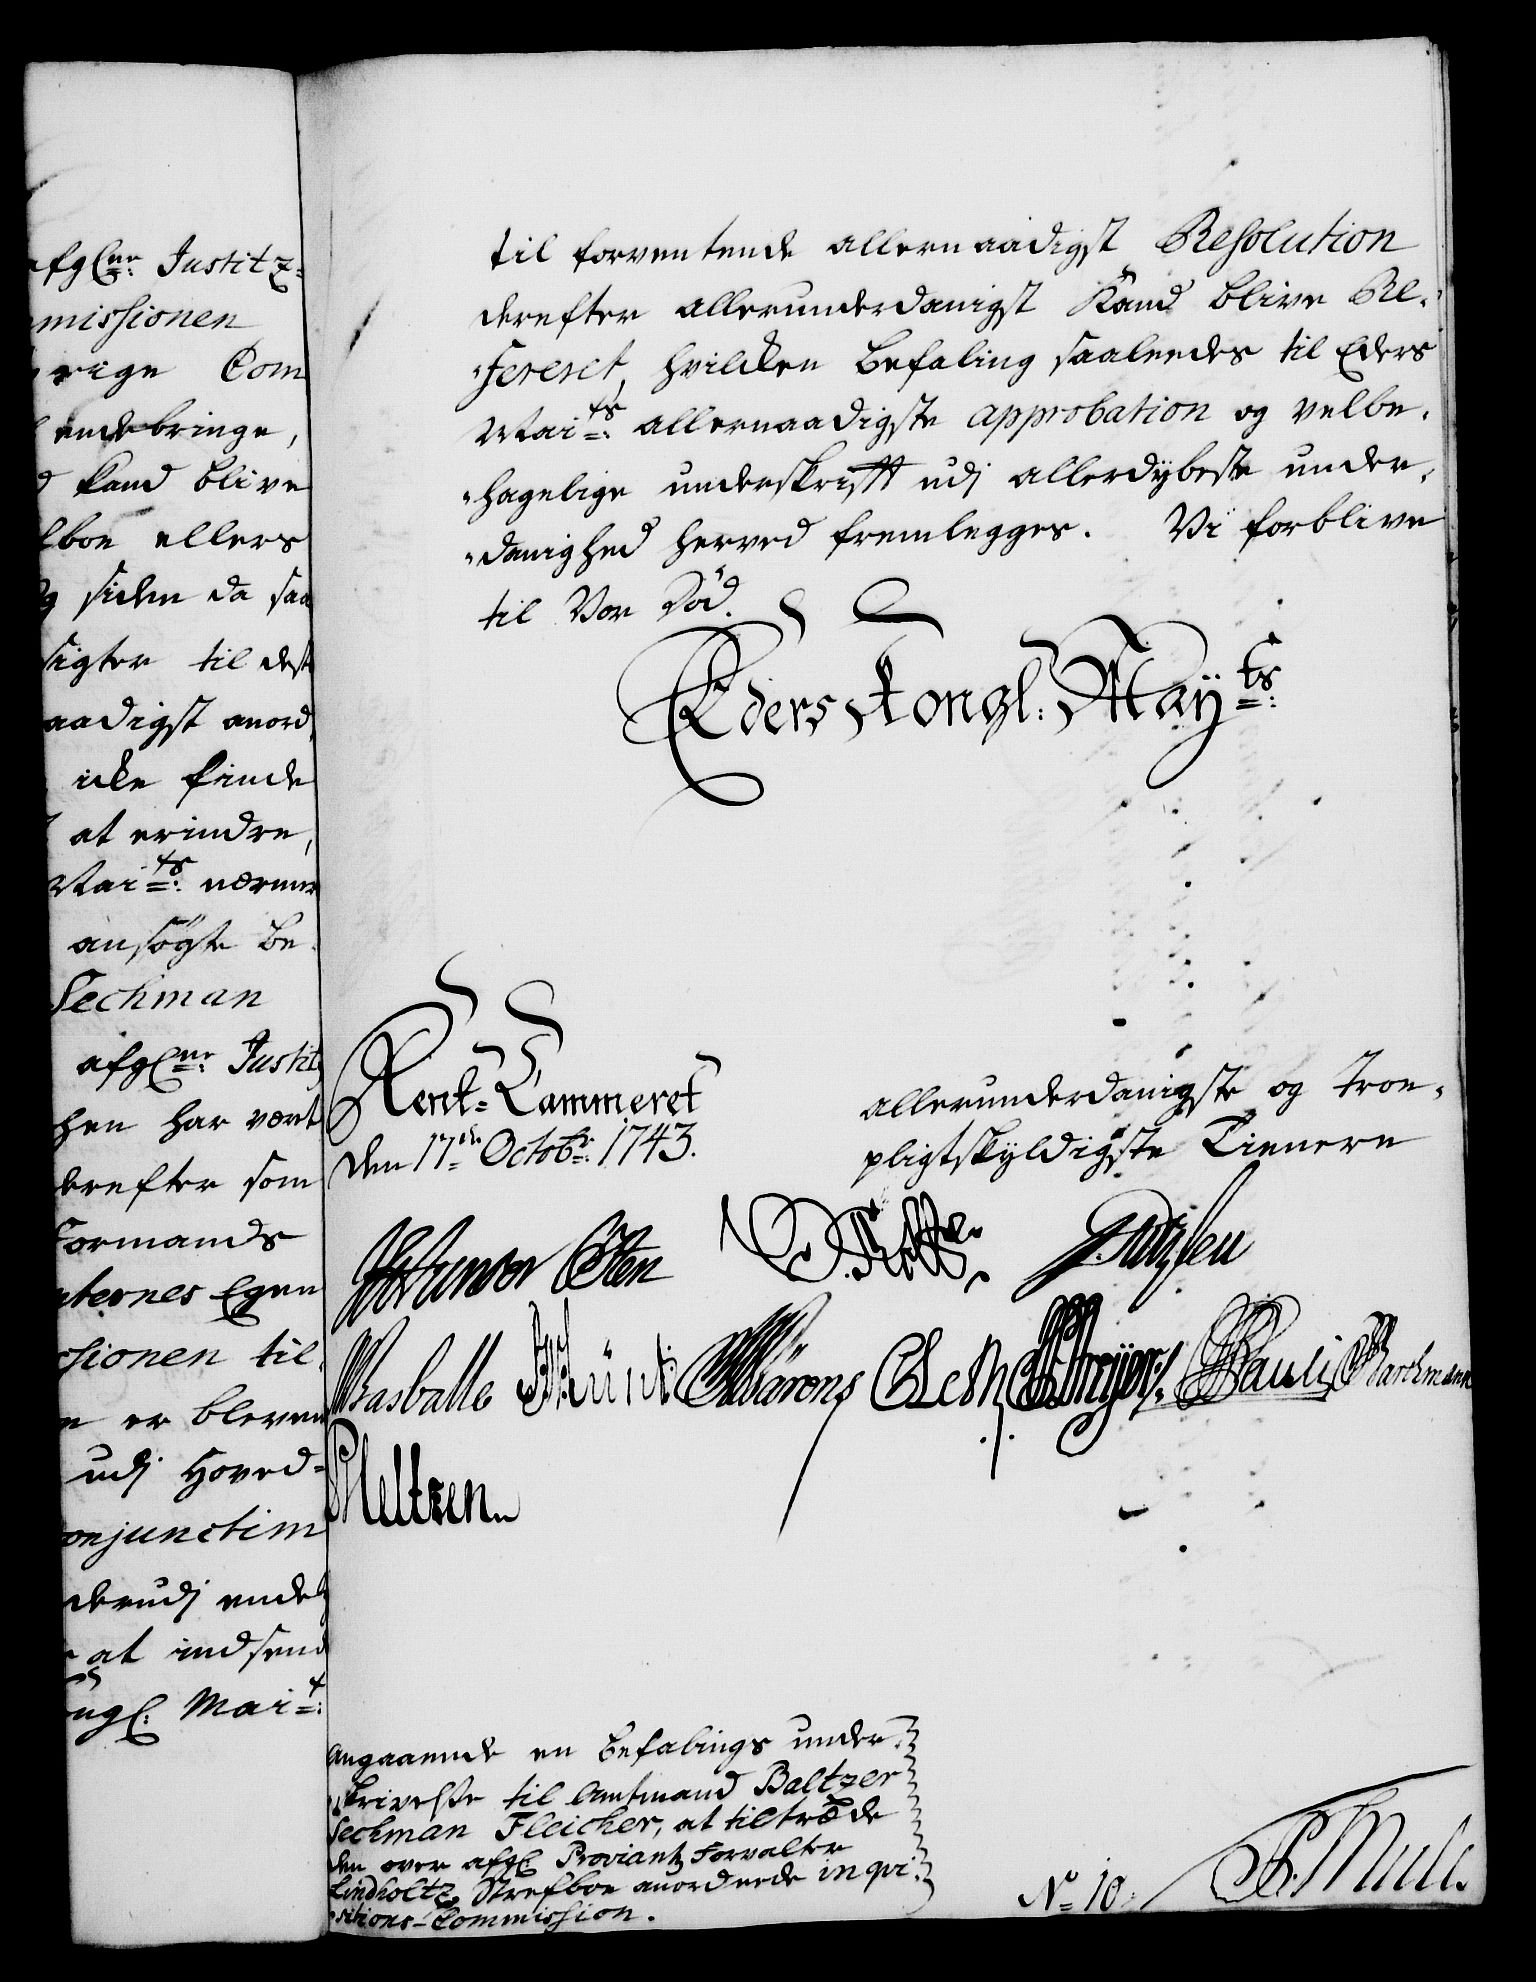 afgl:ne Justitz-
missionen
rige Com
endebringe,
kand blive
lboe ellers
og siden da saa
sigter til dest
aadigst anord
icke finde
at erindre,
Maits: nærmer
ansøgte be
Seckman
afgl:ne Justitz
hen har vært
derefter som
Formands
nternes Egen
sionen til
er bleven
udj Hoved-
onjunctim
derudj endel
at indsend
ngl: Mait:
til forventende allernaadigst Resolution
derefter allerunderdanigst kand blive Re-
-fereret, hvilcken befaling saaleedes til Eders
Maits: allernaadigste approbation og velbe-
-hagelige underskrifft udj allerdybeste under-
-danighed herved fremlegges. Vi forblive
til Vor Død.
Eders Kongl: Mayts:
Rent-Cammeret
den 17de Octobr: 1743.
allerunderdanigste og troe-
pligtskyldigste Tienere
Wasballe
Pauli
Barchmann
Meltzen
Angaaende en befalings under-
-skrivelse til Amtmand Baltzer
Seckman Fleicher, at tiltræde
den over afgl: Proviantz Forvalter
Lindholtz Strefboe anordnede inqvi-
-sitions-Commission.
No 10.